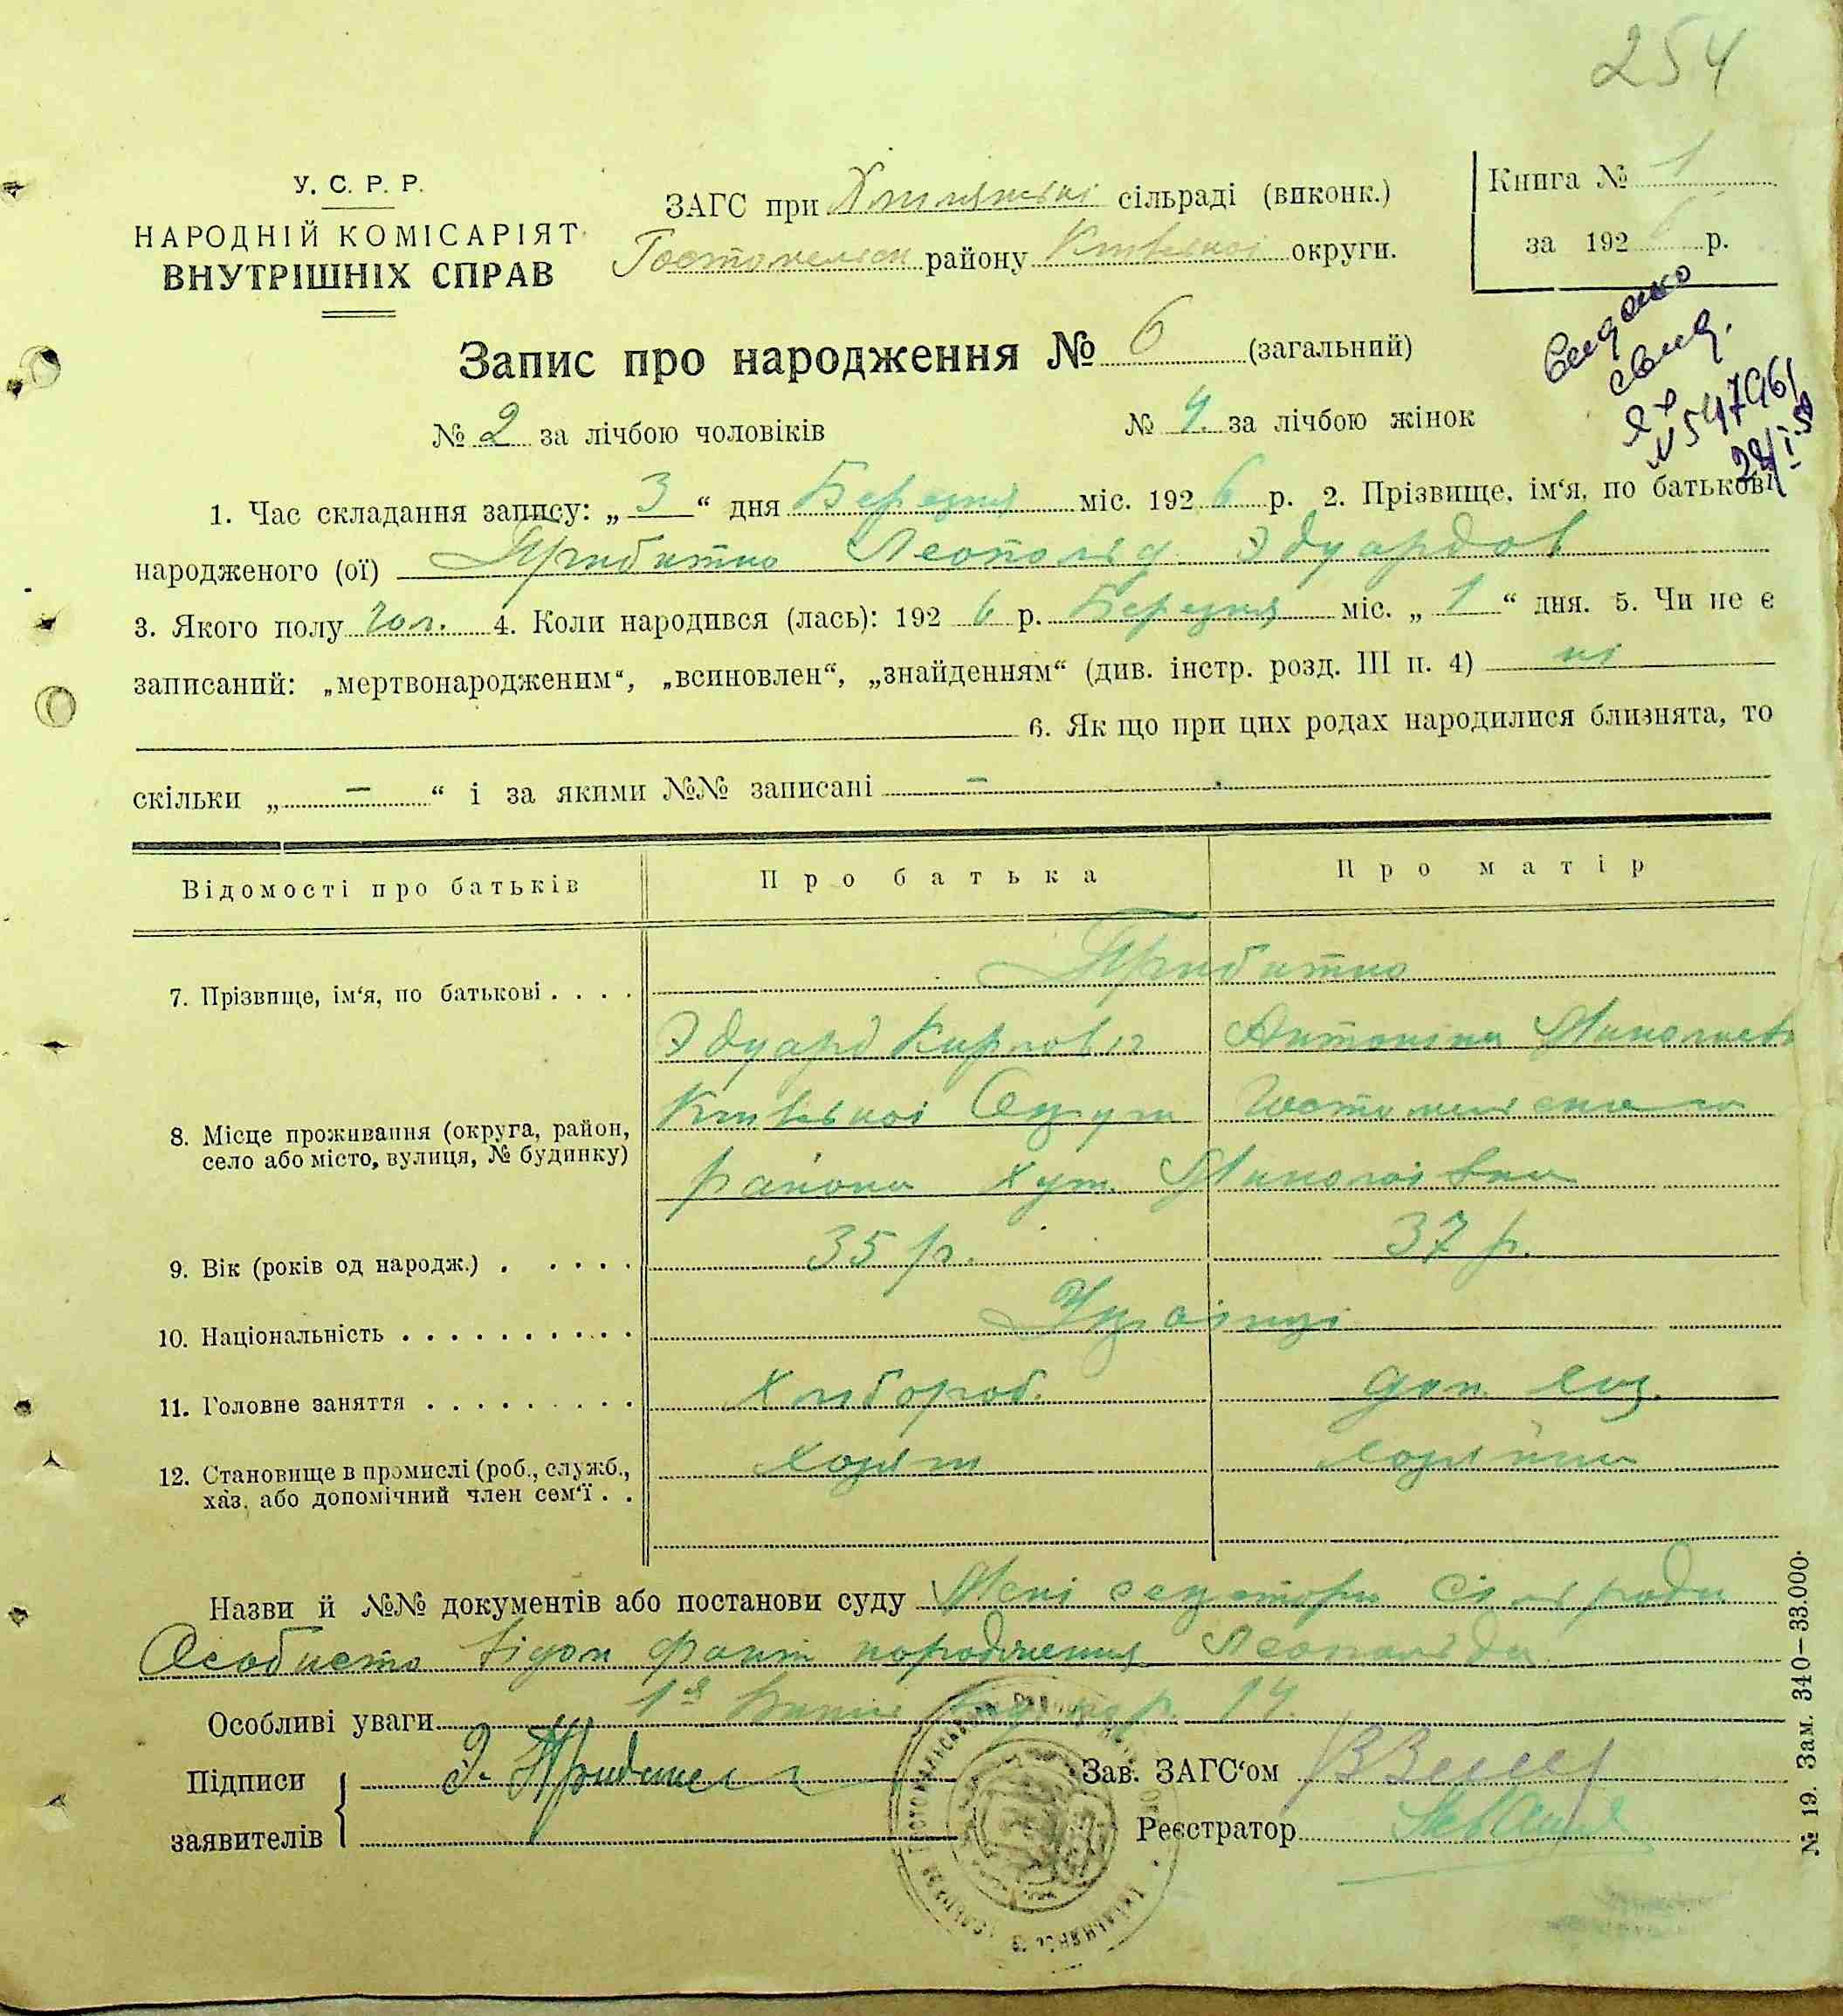 254
У. С. Р. Р.
НАРОДНІЙ КОМІСАРІЯТ
ВНУТРІШНІХ СПРАВ
ЗАГС при сільраді (виконк.)
району округи.
Книга № 1
за 192 6 р.
Запис про народження № 6 (загальний)
№ 2 за лічбою чоловіків
№ 4. за лічбою жінок
свид.
№ 547961
1. Час складання запису: „ 3 “ дня Березня міс. 192 6 р. 2. Прізвище, ім‘я, по батькові
народженого (ої) Прибитко Леопольд Эдуардов
3. Якого полу чол. 4. Коли народився (лась): 192 6 р. Березня міс. „ 1 “ дня. 5. Чи не є
записаний: „мертвонародженим“, „всиновлен“, „знайденням“ (див. інстр. розд. III п. 4) ні
6. Як що при цих родах народилися близнята, то
скільки „ – “ і за якими №№ записані –
Відомості про батьків
Про батька
Про матір
7. Прізвище, ім‘я, по батькові . . . .
Прибитко
Эдуард Карлов
Антоніна
8. Місце проживання (округа, район,
село або місто, вулиця, № будинку)
района хут. Миколаівка
9. Вік (років од народж.) . . . . .
35 р.
37 р.
10. Національність . . . . . . . . . .
Украінці
11. Головне заняття . . . . . . . . .
Хлібороб.
дом. хоз.
12. Становище в промислі (роб., служб.,
хаз. або допомічний член сем‘ї . .
Назви й №№ документів або постанови суду сільради
Особисто відом факт народження Леопольда
Особливі уваги 14.
Підписи
заявителів
Э.
Зав. ЗАГС‘ом
Реєстратор
№ 19. Зам. 340—33.000.